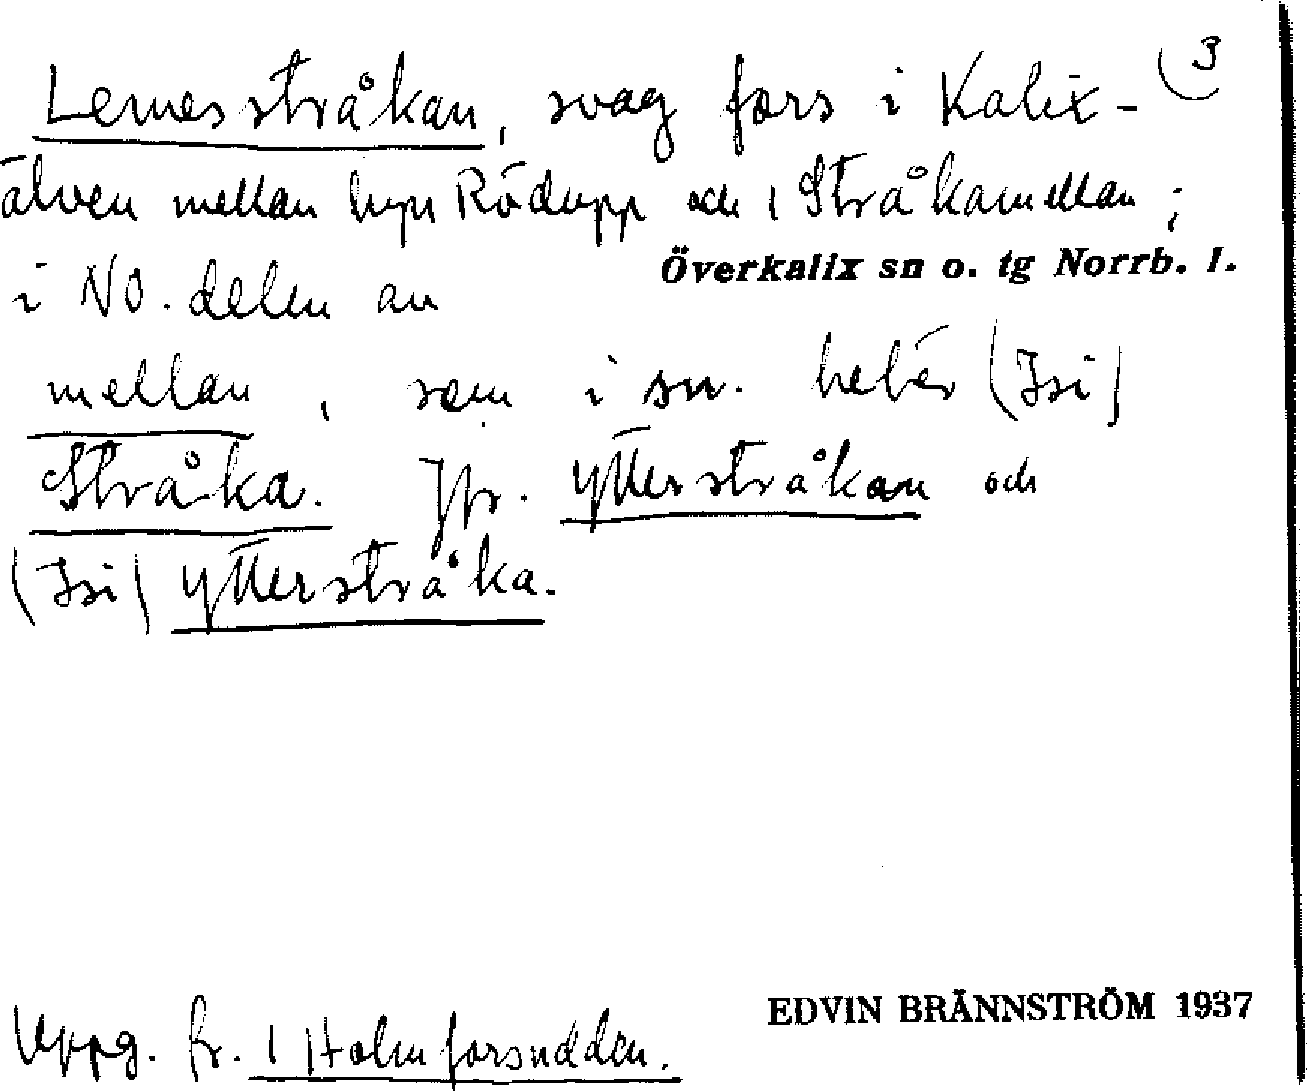 Lernesstråkan, svag fors i Kalix- (3
älven mellan byn Rödupp och 1 Stråkamellan;
Överkalix sn o. tg Norrb. l.
i NO. delen av
mellan, som i sn. heter (Isi)
Stråka. Jfr. Ytterstråkan och
(Isi) Ytterstråka.
EDVIN BRÄNNSTRÖM 1937
Uppg. fr. 1 Holmforsudden.